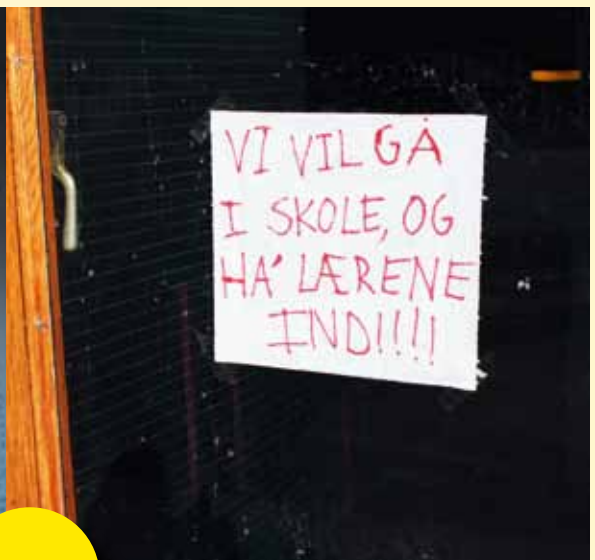 VI VIL GÅ
I SKOLE, OG
HA' LÆRENE
IND!!!!